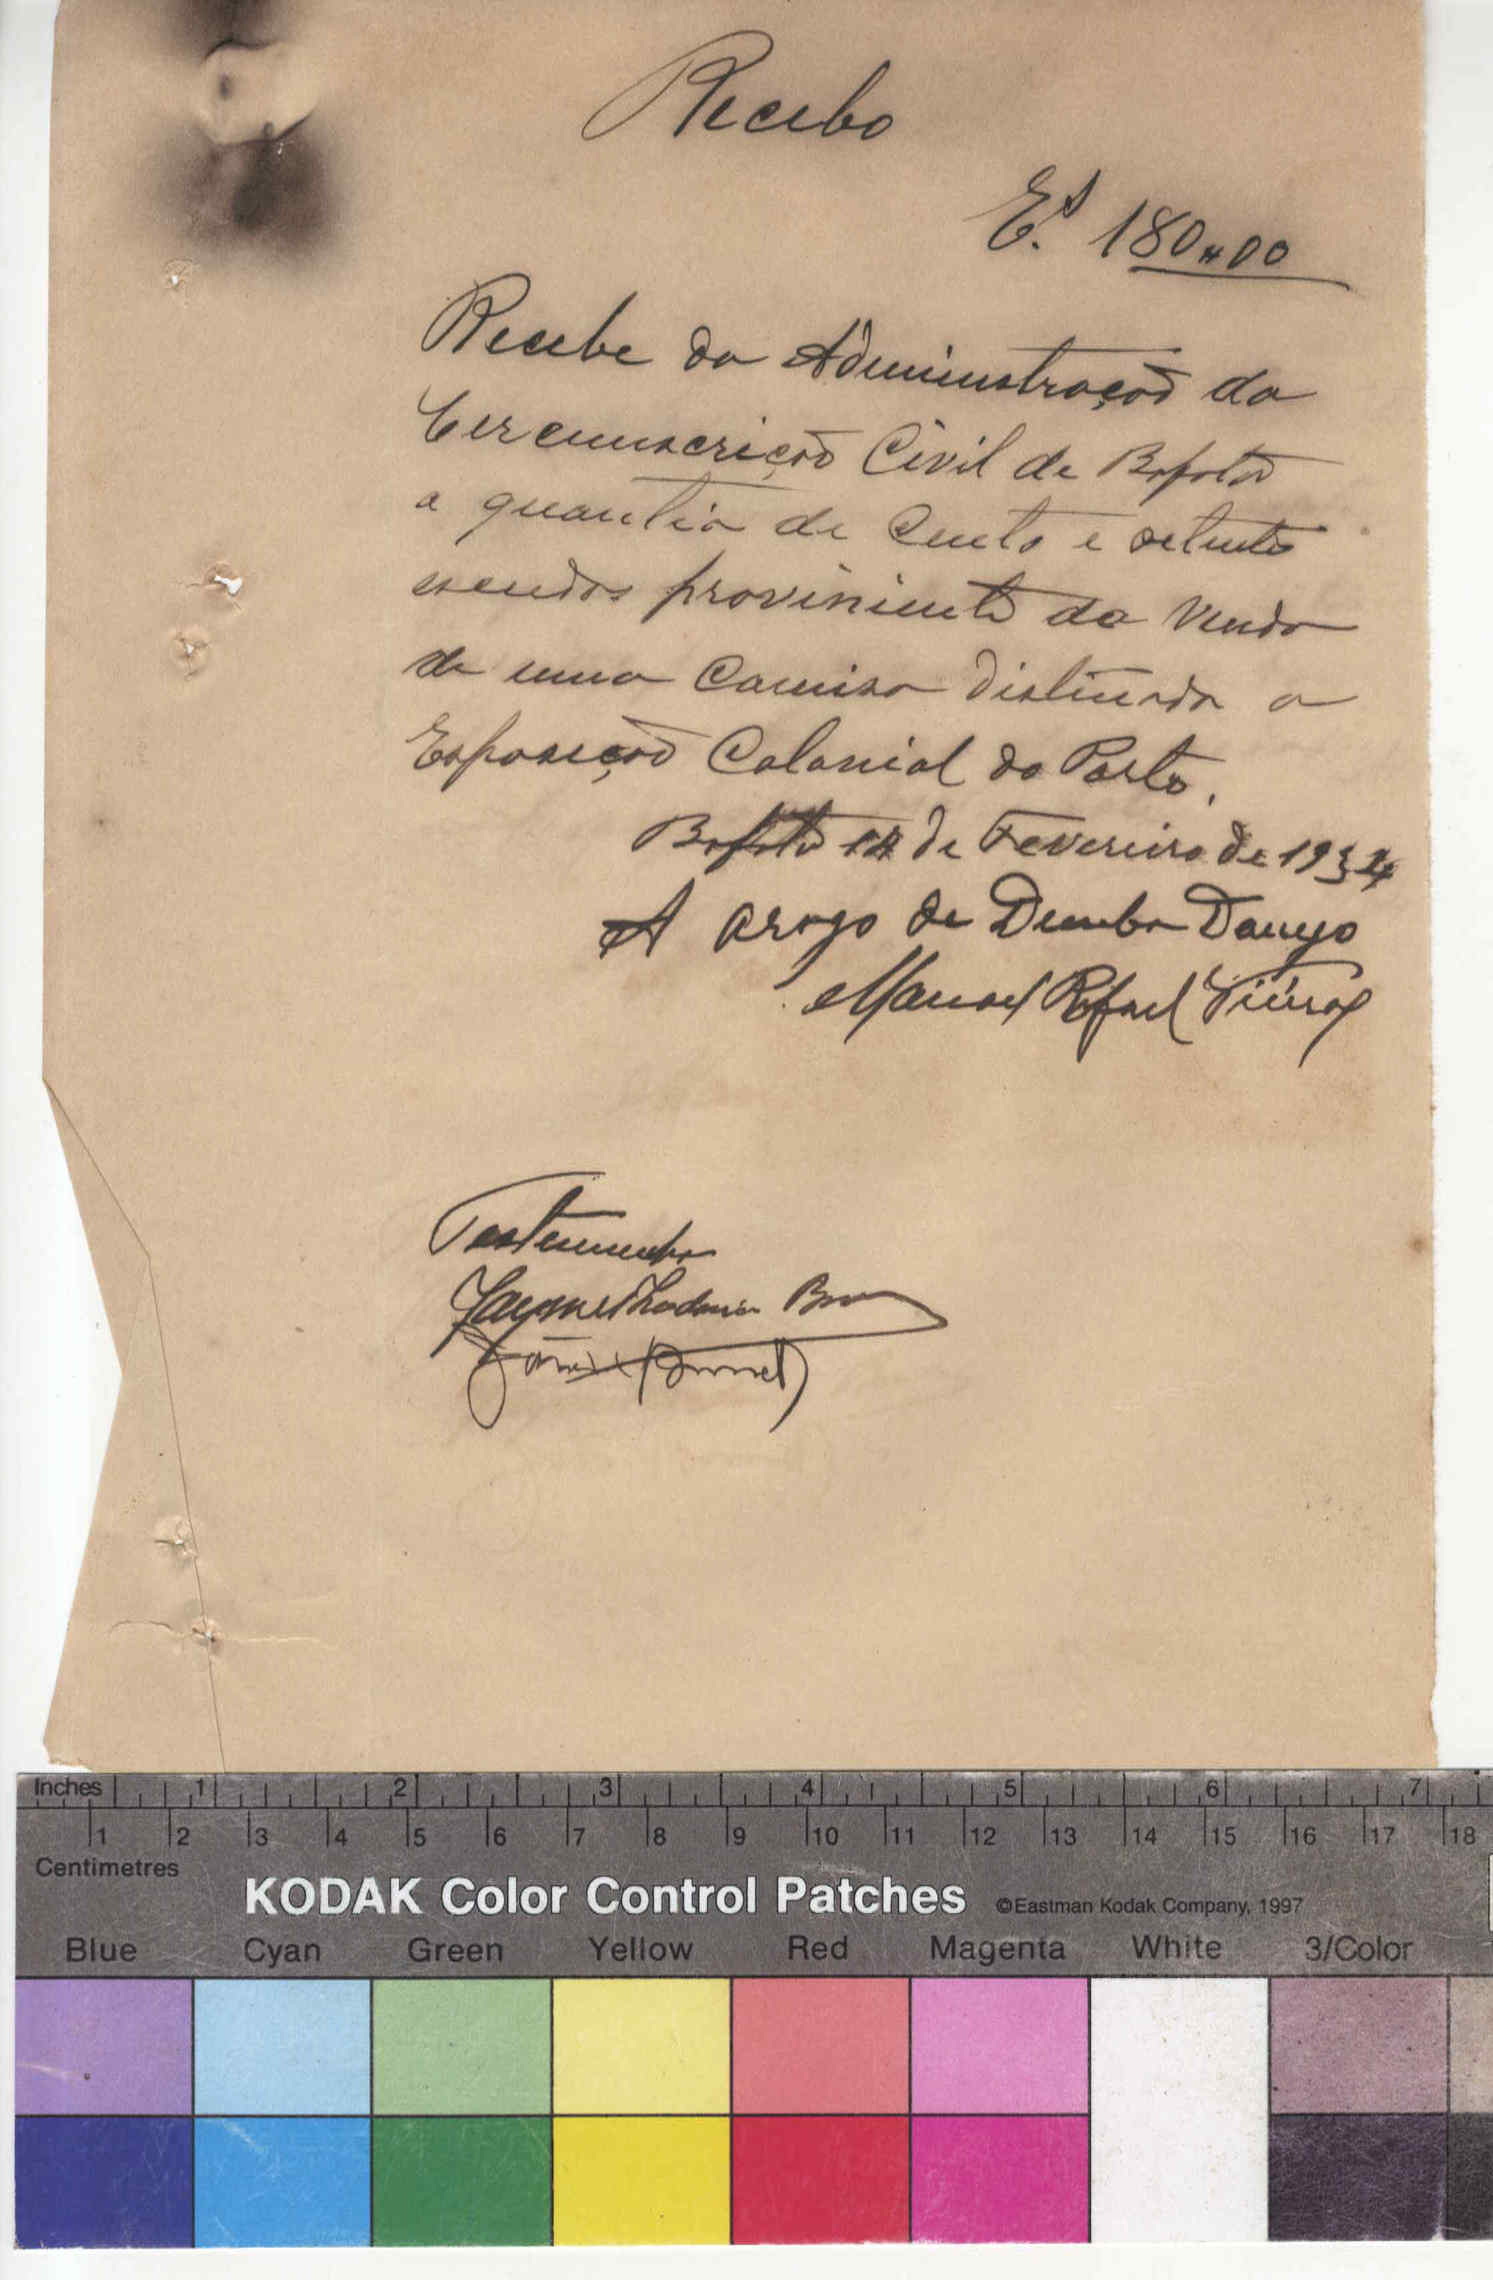 Recebo
E.s 180"00
Recebe da Administração da
Circunscrição Civil de Bafatá
a quantia de cento e oitenta
escudos proviniente da venda
de uma camisa distinada a
Exposição Colonial do Porto.
Bafatá de Fevereiro de 1934
A arogo de Demba Danyo
Manoel Rafael Vieira
Testemunha
Jayme
Inches 1 2 3 4 5 6 7
1 2 3 4 5 6 7 8 9 10 11 12 13 14 15 16 17 18
Centimetres
KODAK Color Control Patches ©Eastman Kodak Company, 1997
Blue Cyan Green Yellow Red Magenta White 3/Color